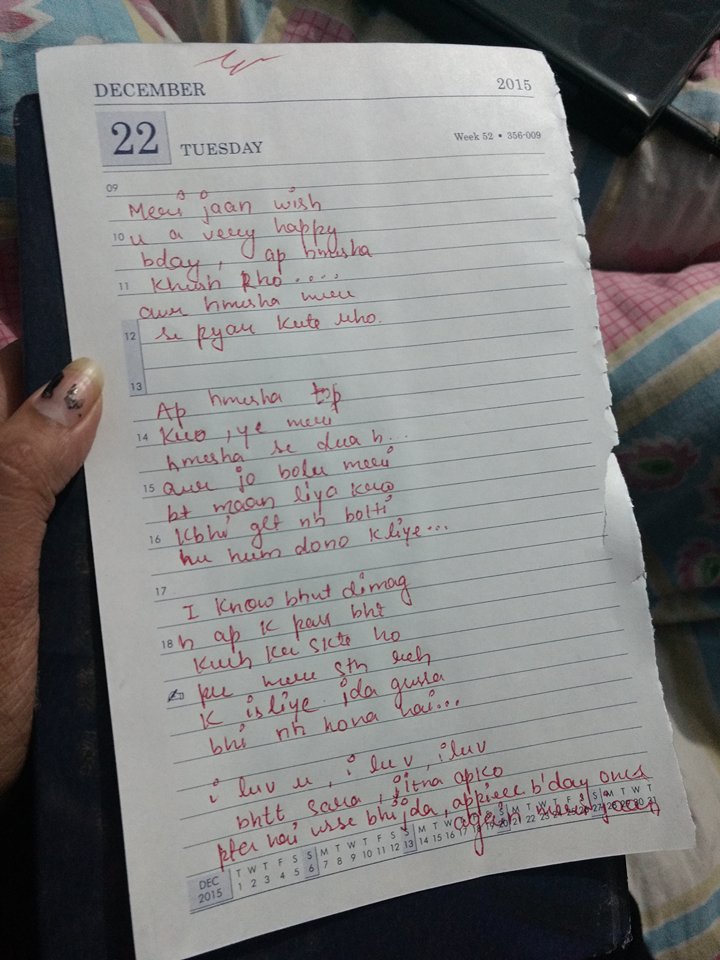 DECEMBER 2015
22 TUESDAY Week 52 • 356-009
09
Meri jaan wish
10 u a very happy
bday, ap hmesha
11 khush Rho ....
aur hmesha mere
12 se pyar krte rho.
13
Ap hmesha top
14 kro, ye meri
hmesha se dua h...
15 aur jo bolu meri
bt maan liya kro
16 kbhi glt nh bolti
hu hum dono k liye...
17
I know bhut dimag
18 h ap k pas bht
kuch kr skte ho
pr mere sth reh
k isliye jda gussa
bhi nh hona hai...
i luv u, i luv, i luv
bhtt sara, jitna apko
pta hai usse bhi jda, appieee b'day once
again meri jaan
DEC 2015
T W T F S S M T W T F S S M T W T F S S M T W T F S S M T W T
1 2 3 4 5 6 7 8 9 10 11 12 13 14 15 16 17 18 19 20 21 22 23 24 25 26 27 28 29 30 31